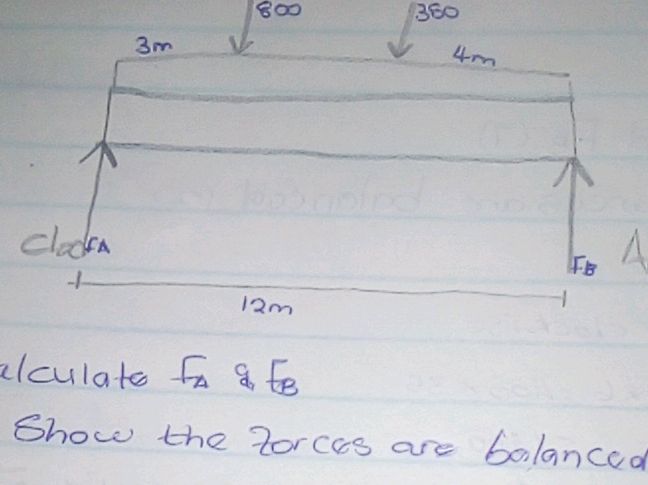 800
380
3m
4m
FA
FB
A
12m
alculate FA & FB
Show the forces are balanced